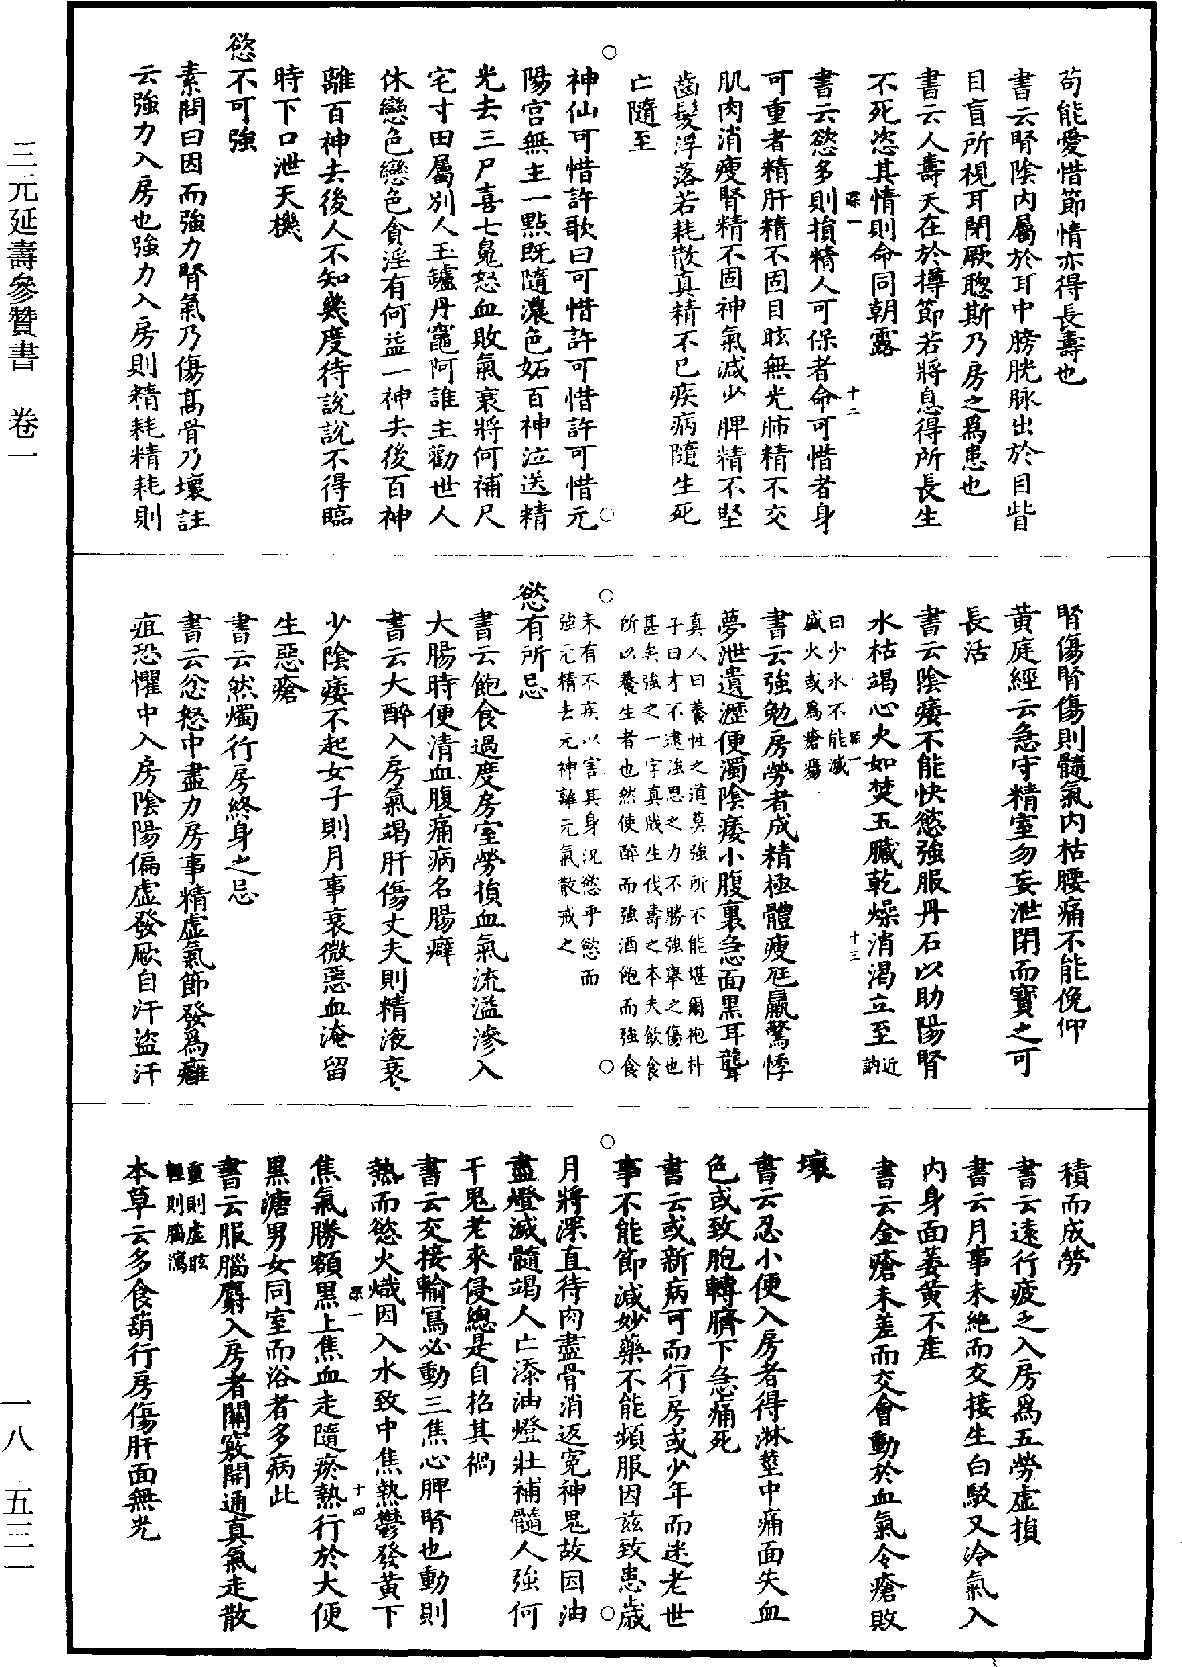 三元延壽參贊書 卷一
苟能愛惜節情亦得長壽也
書云腎陰內屬於耳中膀胱脉出於目眥
目盲所視耳閉厥聦斯乃房之為患也
書云人壽夭在於撙節若將息得所長生
不死恣其情則命同朝露
深一 十二
書云慾多則損精人可保者命可惜者身
可重者精肝精不固目眩無光肺精不交
肌肉消瘦腎精不固神氣減少脾精不堅
齒髮浮落若耗散真精不已疾病隨生死
亡隨至
神仙可惜許歌曰可惜許可惜許可惜元
陽宮無主一點既隨濃色妬百神泣送精
光去三尸喜七䰟怒血敗氣衰將何補尺
宅寸田屬別人玉鑪丹竈阿誰主勸世人
休戀色戀色貪淫有何益一神去後百神
離百神去後人不知幾度待說說不得臨
時下口泄天機
慾不可強
素問曰因而強力腎氣乃傷髙骨乃壞註
云強力入房也強力入房則精耗精耗則
腎傷腎傷則髓氣內枯腰痛不能俛仰
黃庭經云急守精室勿妄泄閉而寶之可
長活
書云陰痿不能快慾強服丹石以助陽腎
水枯竭心火如焚五臟乾燥消渴立至近訥
曰少水不能滅
盛火或為瘡瘍
深一 十三
書云強勉房勞者成精極體瘦尫羸驚悸
夢泄遺瀝便濁陰痿小腹裏急面黑耳聾
真人曰養性之道莫強所不能堪爾抱朴
子曰才不逮強思之力不勝強舉之傷也
甚矣強之一字真戕生伐壽之本夫飲食
所以養生者也然使醉而強酒飽而強食
未有不疾以害其身況慾乎慾而
強元精去元神離元氣散戒之
慾有所忌
書云飽食過度房室勞損血氣流溢滲入
大腸時便清血腹痛病名腸癖
書云大醉入房氣竭肝傷丈夫則精液衰
少陰痿不起女子則月事衰微惡血淹留
生惡瘡
書云然燭行房終身之忌
書云忿怒中盡力房事精虛氣節發為癰
疽恐懼中入房陰陽偏虛發厥自汗盜汗
積而成勞
書云遠行疲乏入房為五勞虛損
書云月事未絕而交接生白駁又冷氣入
內身面萎黃不產
書云金瘡未差而交會動於血氣令瘡敗
壞
書云忍小便入房者得淋莖中痛面失血
色或致胞轉臍下急痛死
書云或新病可而行房或少年而迷老世
事不能節減妙藥不能頻服因茲致患歲
月將深直待肉盡骨消返寃神鬼故因油
盡燈滅髓竭人亡添油燈壯補髓人強何
干鬼老來侵總是自招其禍
書云交接輸寫必動三焦心脾腎也動則
熱而慾火熾因入水致中焦熱鬱發黃下
深一 十四
焦氣勝額黑上焦血走隨瘀熱行於大便
黑溏男女同室而浴者多病此
書云服腦麝入房者關竅開通真氣走散
重則虛眩
輕則腦瀉
本草云多食葫行房傷肝面無光
一八 五三一